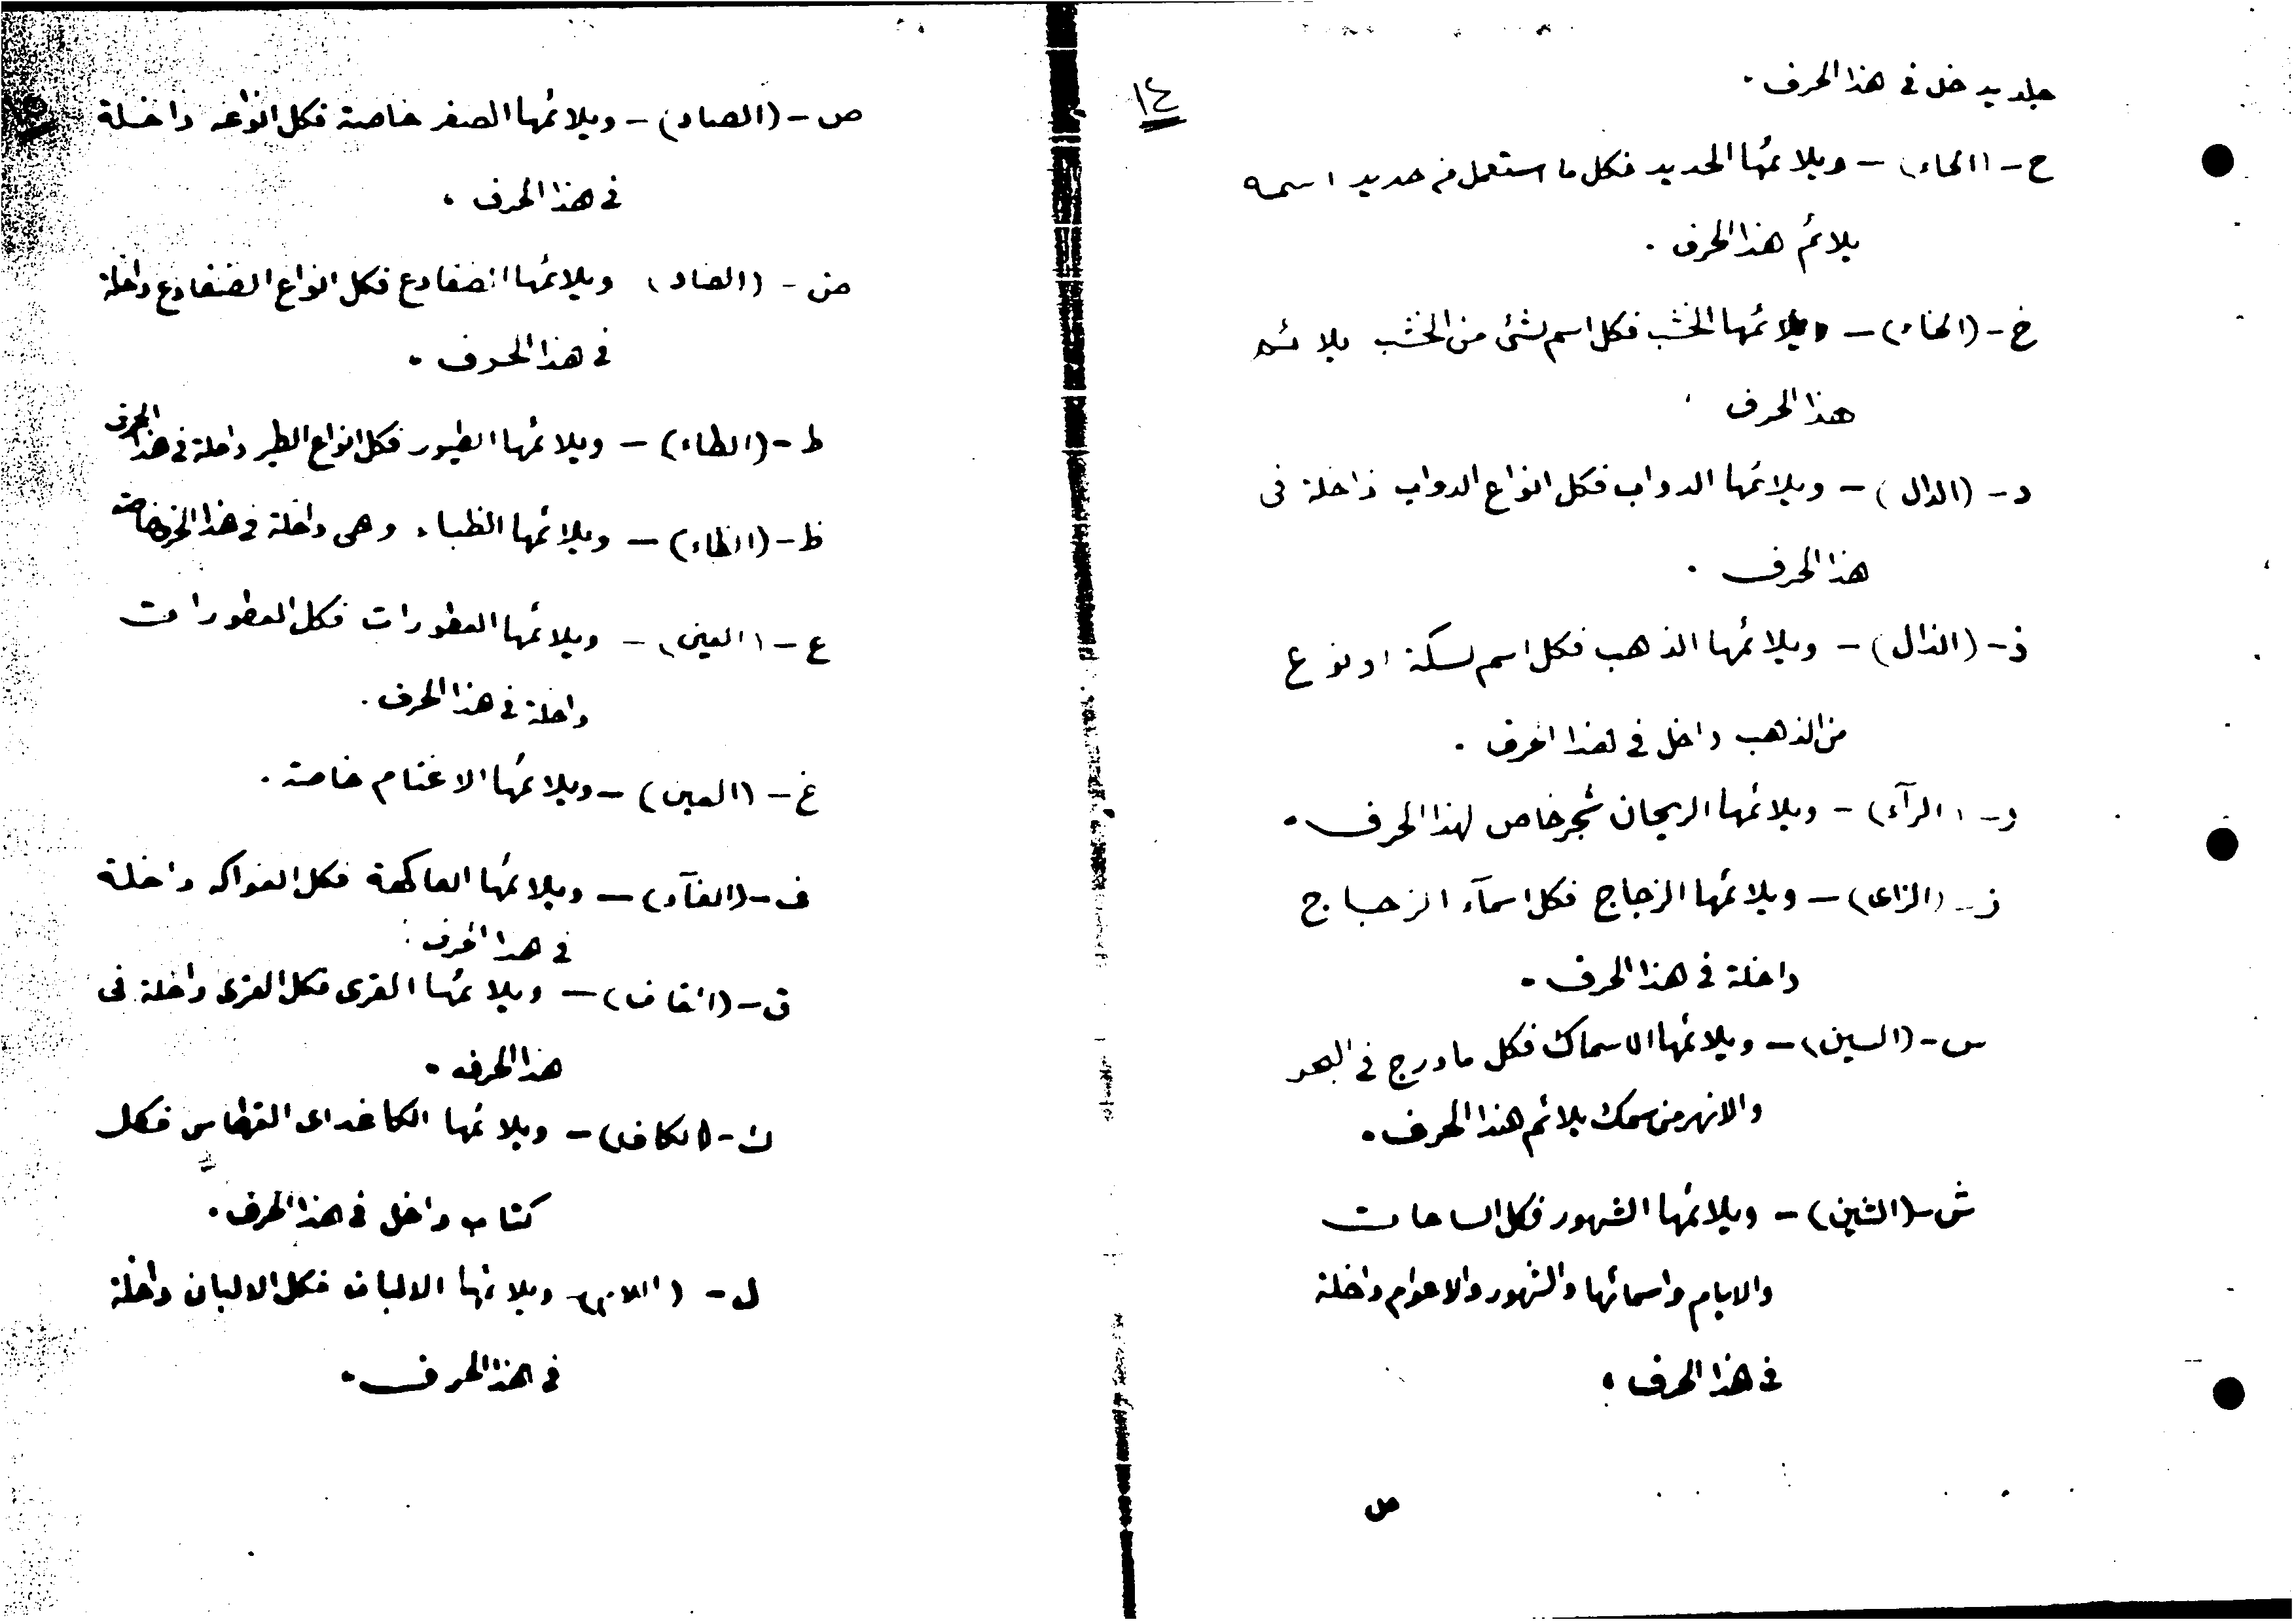 ١٤
جلد يدخل فى هذا الحرف .
ح - (الحاء) - ويلائمها الحديد فكل ما استعمل من حديد اسمه
يلائم هذا الحرف .
خ - (الخاء) - ويلائمها الخشب فكل اسم لشئ من الخشب يلائم
هذا الحرف
د - (الدال) - ويلائمها الدواب فكل انواع الدواب داخلة فى
هذا الحرف .
ذ - (الذال) - ويلائمها الذهب فكل اسم لسكة او نوع
من الذهب داخل فى هذا الحرف .
ر - (الرآء) - ويلائمها الريحان شجر خاص لهذا الحرف .
ز - (الزاى) - ويلائمها الزجاج فكل اسمآء الزجاج
داخلة فى هذا الحرف .
س - (السين) - ويلائمها الاسماك فكل ما درج فى البحر
والانهر من سمك يلائم هذا الحرف .
ش - (الشين) - ويلائمها الشهور فكل الساعات
والايام واسمائها والشهور والاعوام داخلة
فى هذا الحرف .
ص
ص - (الصاد) - ويلائمها الصفر خاصة فكل انواعه داخلة
فى هذا الحرف .
ض - (الضاد) ويلائمها الضفادع فكل انواع الضفادع داخلة
فى هذا الحرف .
ط - (الطاء) - ويلائمها الطيور فكل انواع الطير داخلة فى هذا الحرف
ظ - (الظاء) - ويلائمها الظباء وهى داخلة فى هذا الحرف خاصة
ع - (العين) - ويلائمها العطورات فكل العطورات
داخلة فى هذا الحرف .
غ - (الغين) - ويلائمها الاغنام خاصة .
ف - (الفآء) - ويلائمها الفاكهة فكل الفواكه داخلة
فى هذا الحرف .
ق - (القاف) - ويلائمها القرى فكل القرى داخلة فى
هذا الحرف .
ك - (الكاف) - ويلائمها الكاغد اى القرطاس فكل
كتاب داخل فى هذا الحرف .
ل - (اللام) - ويلائمها الالبان فكل الالبان داخلة
فى هذا الحرف .